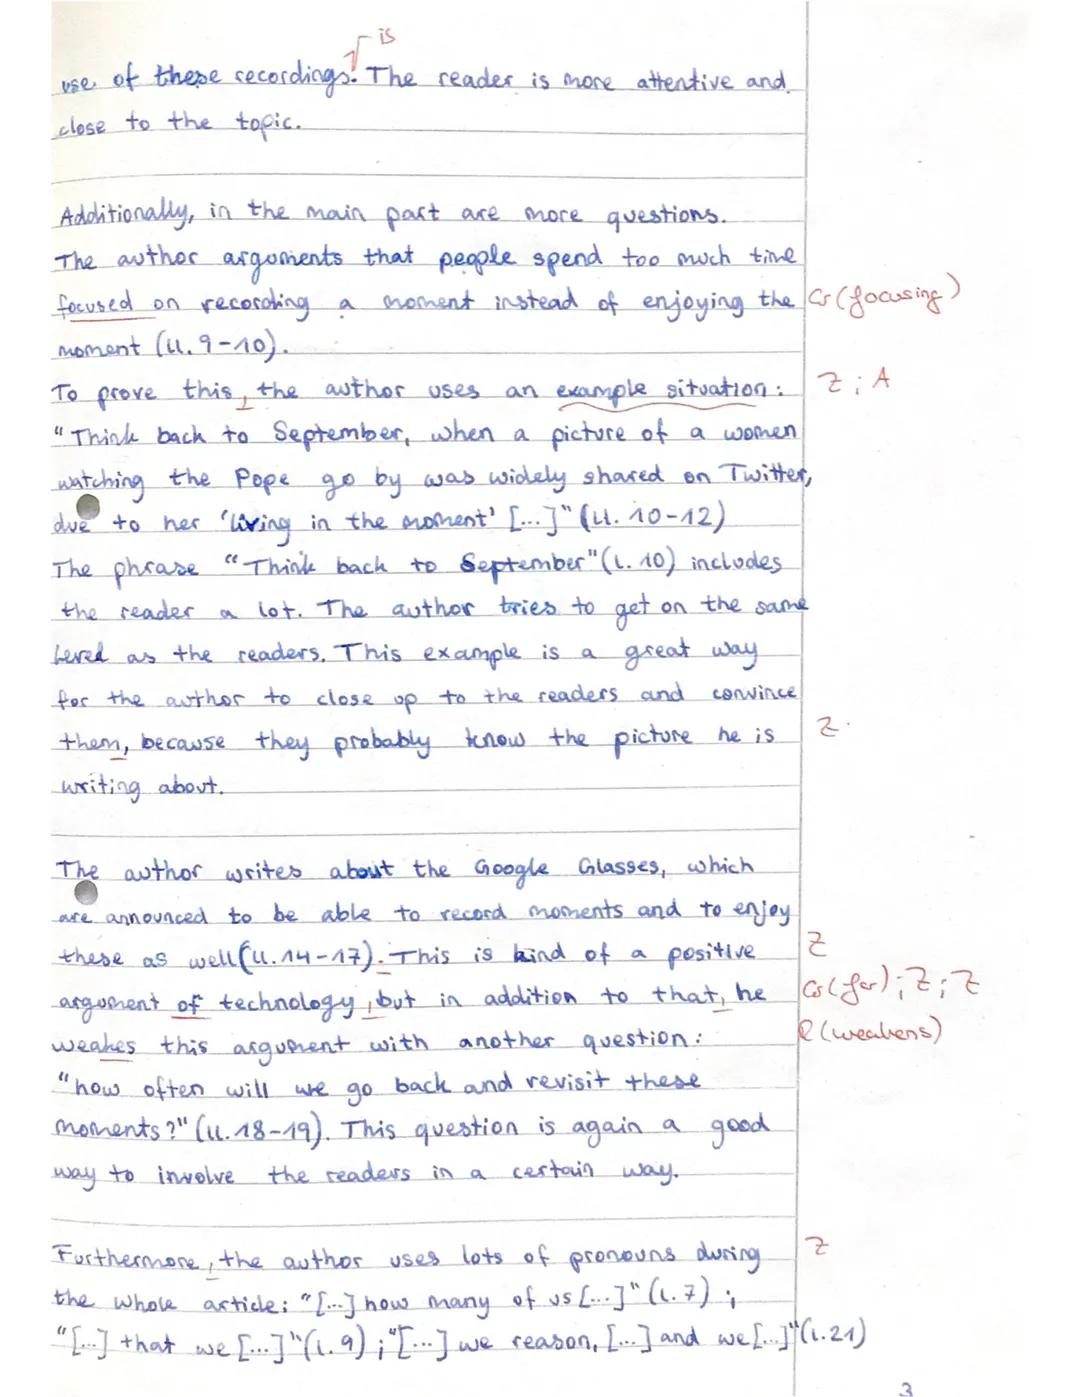 is
use of these recordings. The reader is more attentive and
close to the topic.
Additionally, in the main part are more questions.
The author arguments that people spend too much time
focused on recording a moment instead of enjoying the Gr (focusing)
moment (ll. 9-10).
To prove this, the author uses an example situation: Z; A
"Think back to September, when a picture of a women
watching the Pope go by was widely shared on Twitter,
due to her 'living in the moment' [...]" (ll. 10-12)
The phrase "Think back to September" (l. 10) includes
the reader a lot. The author tries to get on the same
level as the readers. This example is a great way
for the author to close up to the readers and convince
them, because they probably know the picture he is Z
writing about.
The author writes about the Google Glasses, which
are announced to be able to record moments and to enjoy
these as well (ll. 14-17). This is kind of a positive Z
argument of technology, but in addition to that, he Gr (for); Z; Z
weakes this argument with another question: R (weakens)
"how often will we go back and revisit these
moments?" (ll. 18-19). This question is again a good
way to involve the readers in a certain way.
Furthermore, the author uses lots of pronouns during Z
the whole article: "[...] how many of us [...]" (l. 7) ;
"[...] that we [...]" (l. 9) ; "[...] we reason, [...] and we [...]" (l. 21)
3